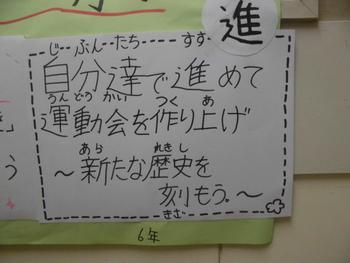 進
じ ぶん たち すす
自分達で進めて
うんどうかい つく あ
運動会を作り上げ
あら れきし
～新たな歴史を
刻もう。～
きざ
6年
う